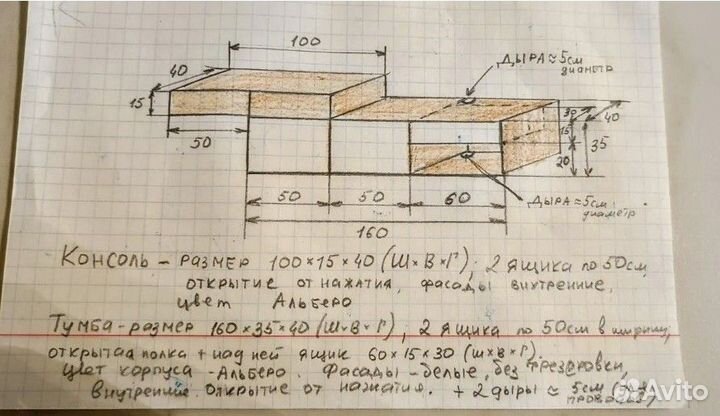 100
ДЫРА ≈ 5см
диаметр
40
15
30
40
15
35
20
50
50
50
60
ДЫРА ≈ 5см
диаметр
160
Консоль – размер 100×15×40 (Ш×В×Г); 2 ящика по 50см,
открытие от нажатия, фасады внутренние,
цвет Альберо
Тумба – размер 160×35×40 (Ш×В×Г); 2 ящика по 50см в ширину,
открытая полка + над ней ящик 60×15×30 (Ш×В×Г).
Цвет корпуса – Альберо. Фасады – белые, без фрезеровки,
внутренние. Открытие от нажатия. + 2 дыры ≈ 5см (для
Avito